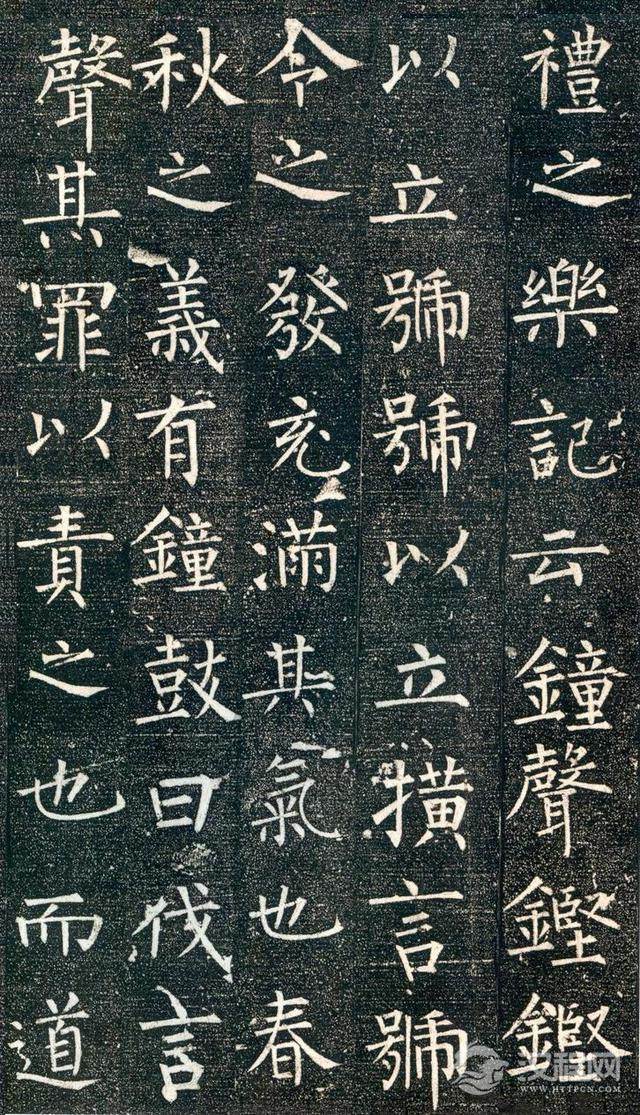 禮之樂記云鐘聲鏗鏗
以立號號以立撗言號
令之發充滿其氣也春
秋之義有鐘鼓曰伐言
聲其罪以責之也而道
汉程网
WWW.HTTPCN.COM